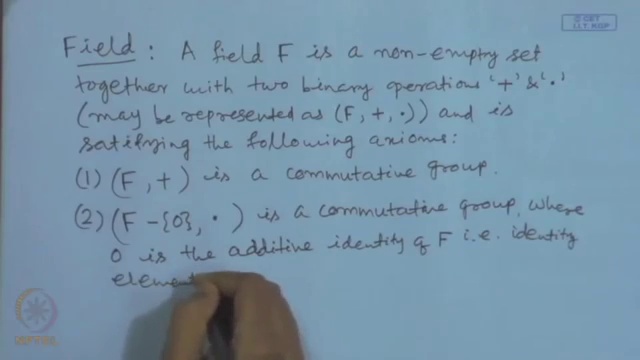 © CET
I.I.T. KGP
Field : A field F is a non-empty set
together with two binary operations '+' & '·'
(may be represented as (F, +, ·)) and is
satisfying the following axioms:
(1) (F, +) is a commutative group.
(2) (F - {0}, ·) is a commutative group, where
0 is the additive identity of F i.e. identity
element
NPTEL